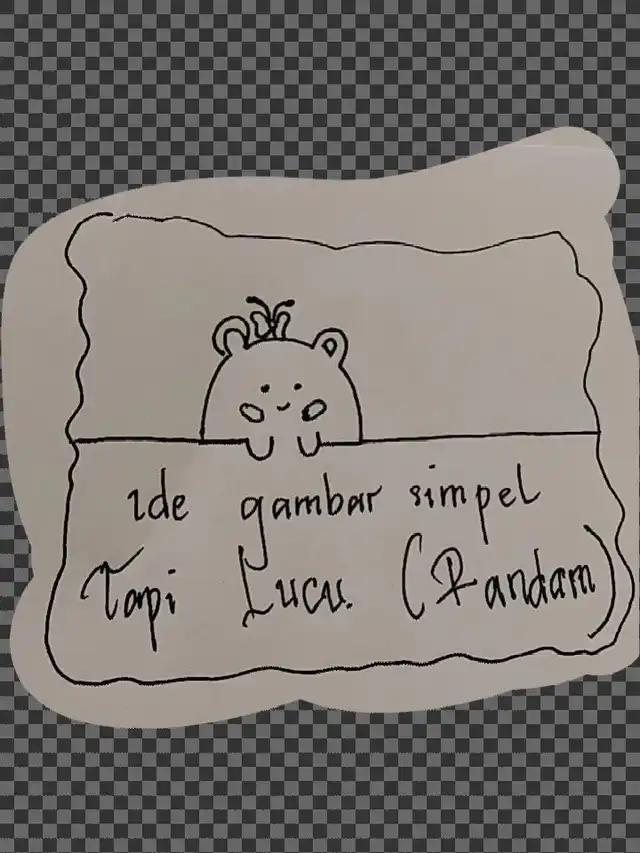 ide gambar simpel
Tapi Lucu. (Random)